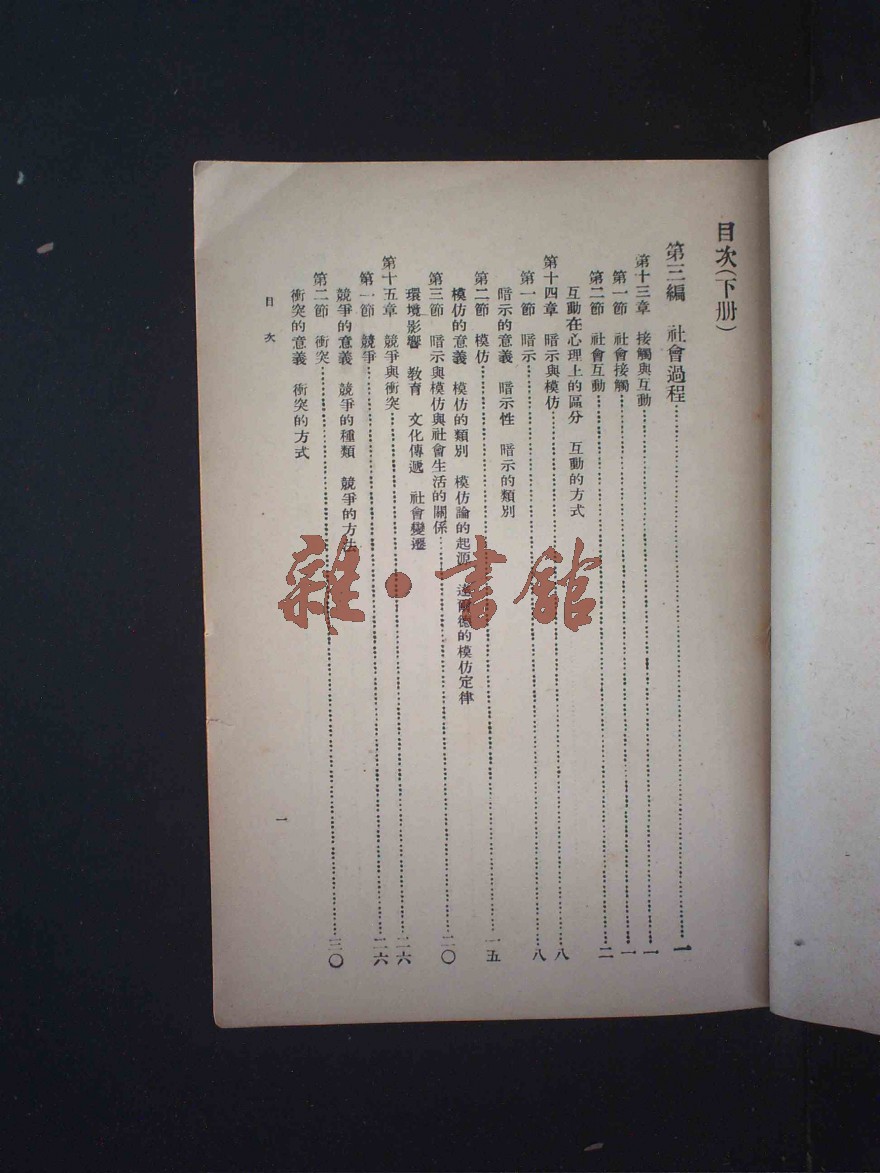 目次(下册)
第三編 社會過程……一
第十三章 接觸與互動……一
第一節 社會接觸……一
第二節 社會互動……二
互動在心理上的區分 互動的方式
第十四章 暗示與模仿……八
第一節 暗示……八
暗示的意義 暗示性 暗示的類別
第二節 模仿……一五
模仿的意義 模仿的類別 模仿論的起源 達爾德的模仿定律
第三節 暗示與模仿與社會生活的關係……二〇
環境影響 教育 文化傳遞 社會變遷
第十五章 競爭與衝突……二六
第一節 競爭……二六
競爭的意義 競爭的種類 競爭的方法
第二節 衝突……三〇
衝突的意義 衝突的方式
目次
一
雜·書館